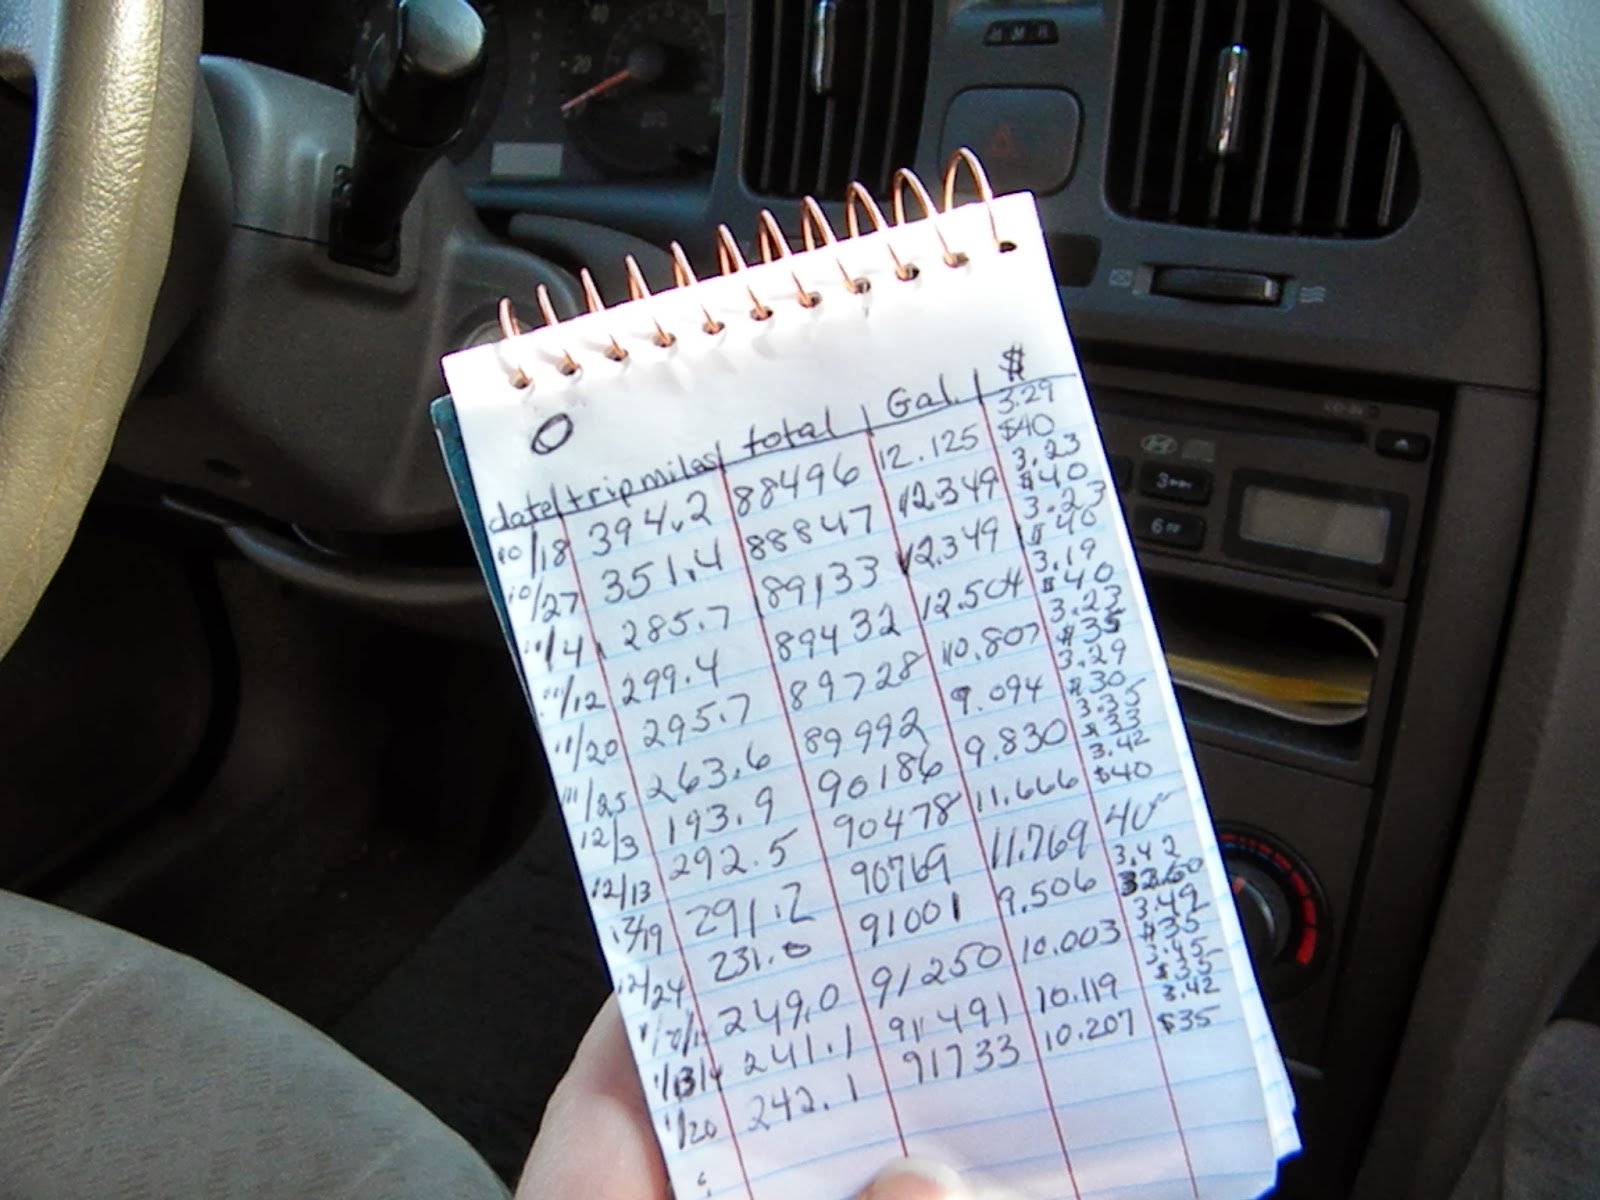 $
date trip miles total Gal.
3.29
10/18 394.2 88496 12.125 $40
3.23
10/27 351.4 88847 12.349 $40
3.23
11/4 285.7 89133 12.349 $40
3.19
11/12 299.4 89432 12.504 $40
3.23
11/20 295.7 89728 10.807 $35
3.29
11/25 263.6 89992 9.094 $30
3.35
12/3 193.9 90186 9.830 $33
3.42
12/13 292.5 90478 11.666 $40
12/19 291.2 90769 11.769 40
3.42
12/24 231.0 91001 9.506
3.49
249.0 91250 10.003 $35
3.45
1/13/14 241.1 91491 10.119 $35
3.42
1/20 242.1 91733 10.207 $35
3
6
20